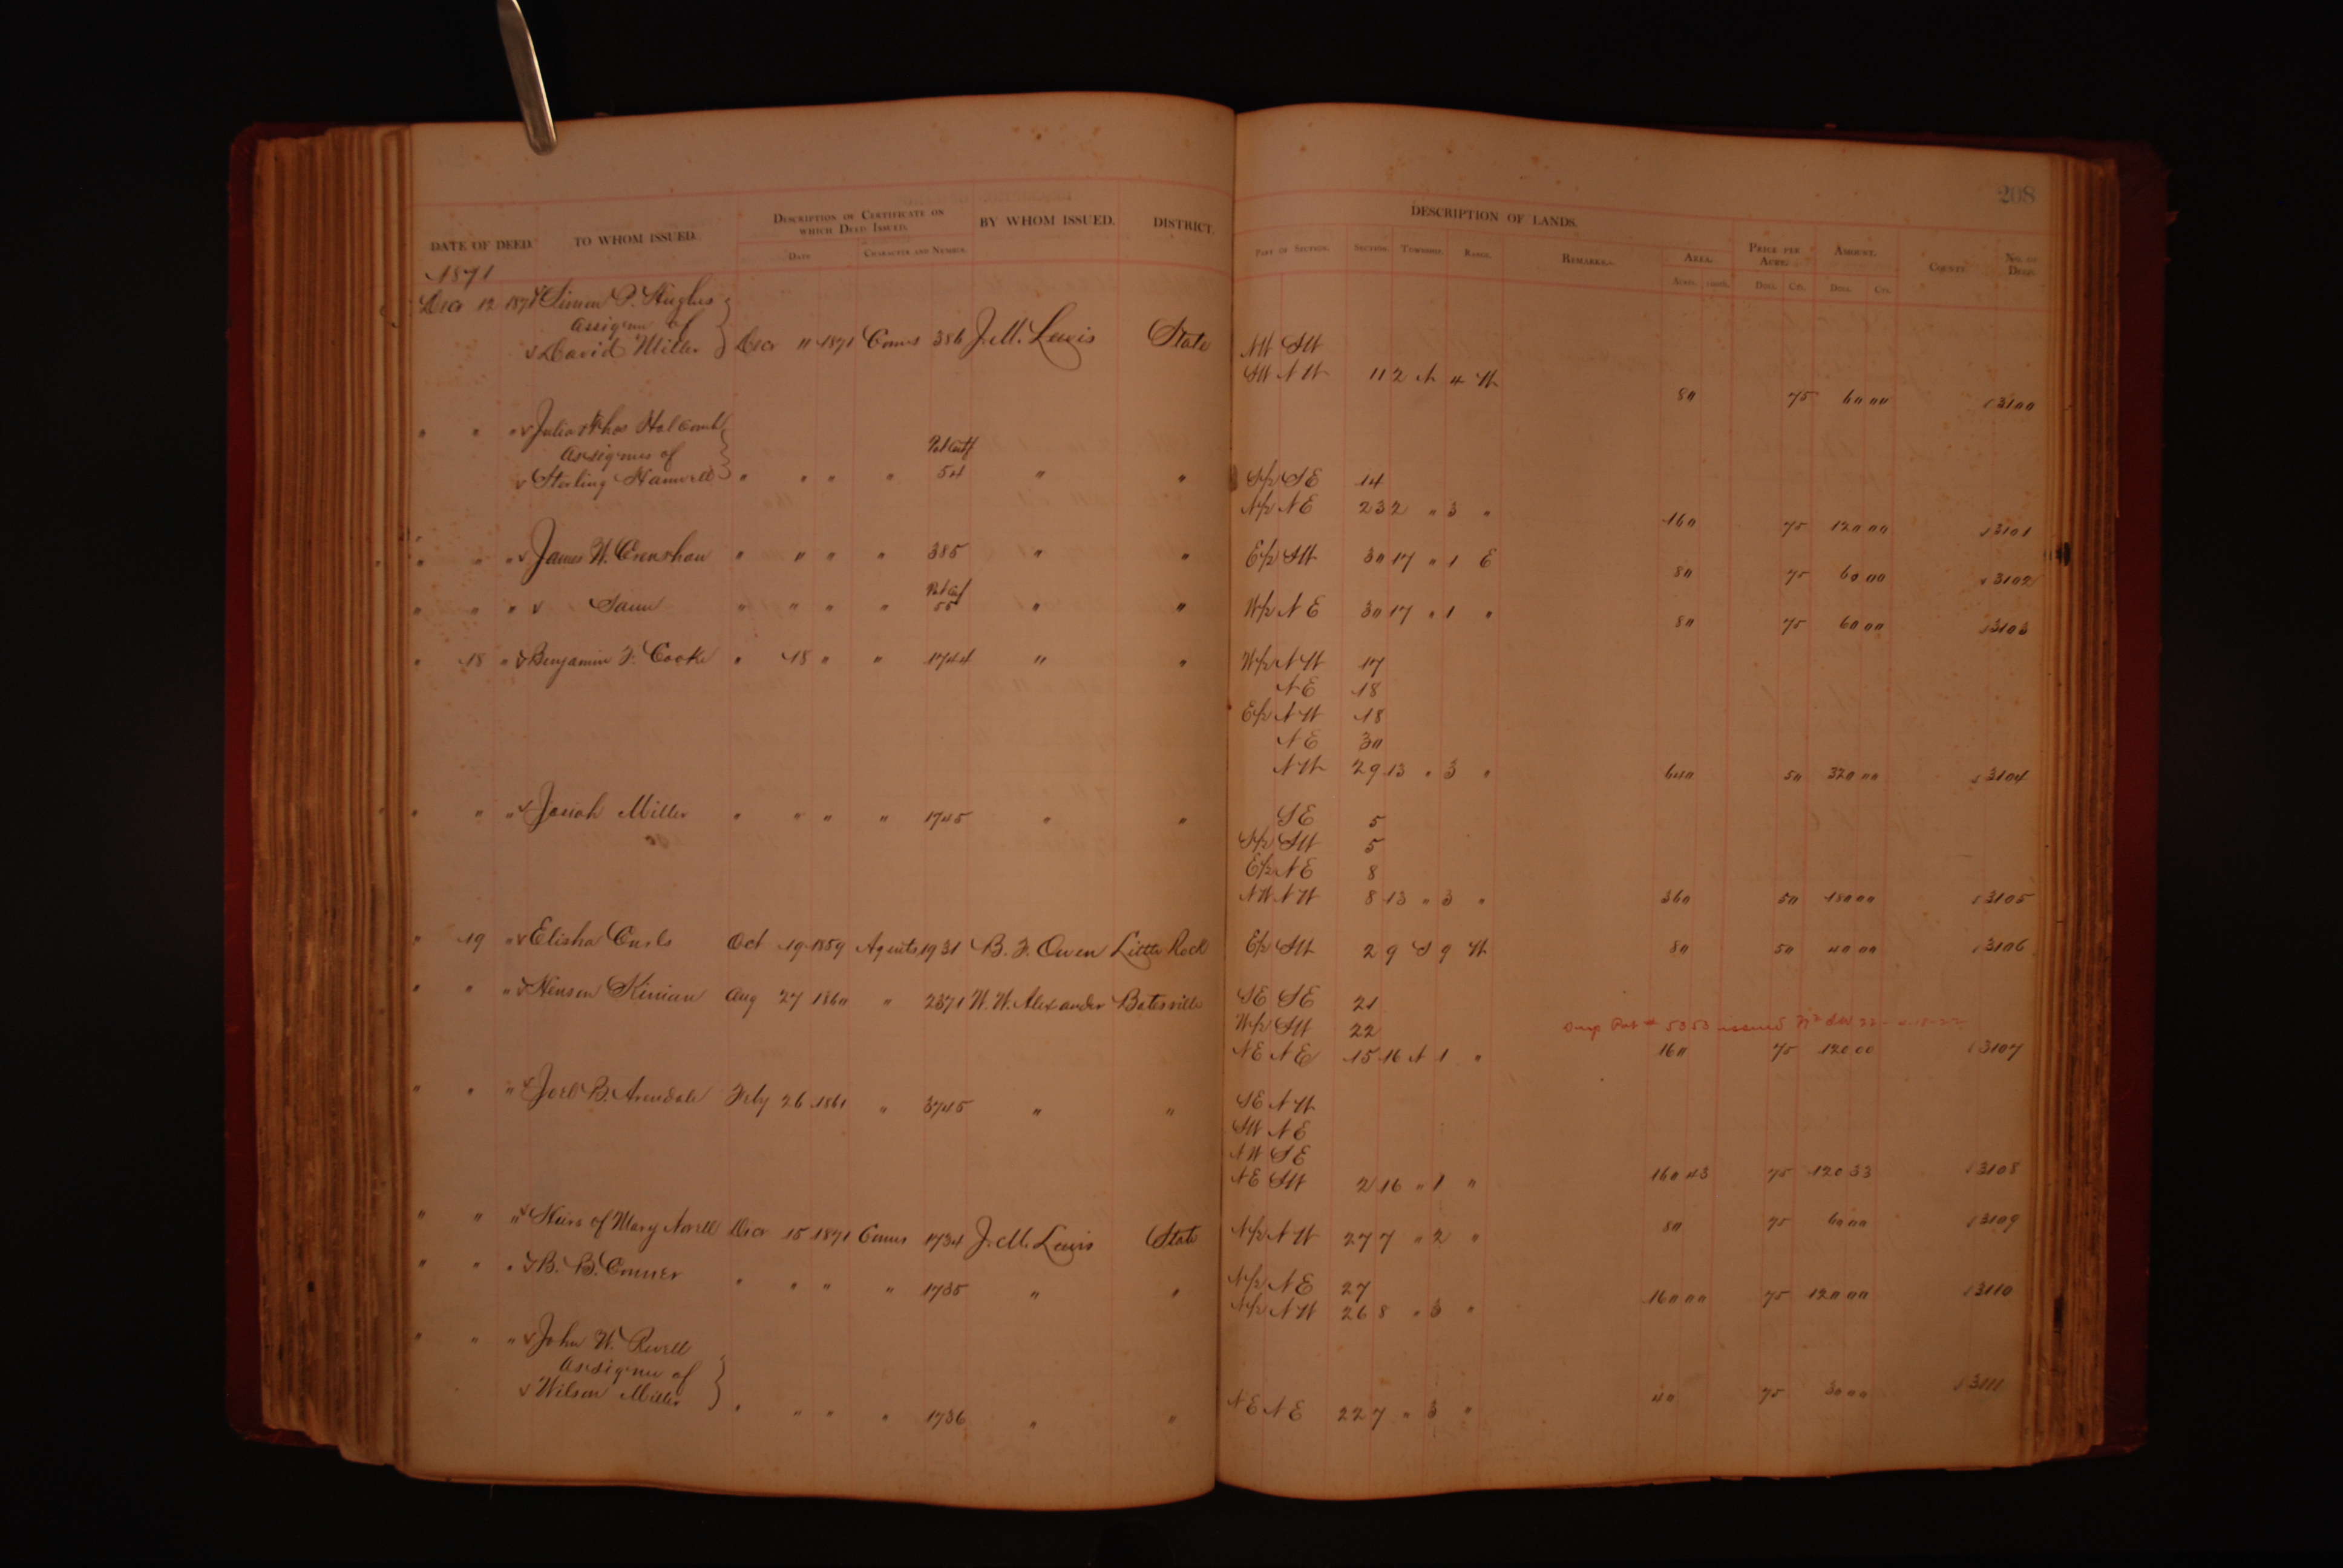 208
DATE OF DEED. TO WHOM ISSUED. DESCRIPTION OF CERTIFICATE ON WHICH DEED ISSUED. BY WHOM ISSUED. DISTRICT. DESCRIPTION OF LANDS.
DATE CHARACTER AND NUMBER. PART OF SECTION. SECTION. TOWNSHIP. RANGE. REMARKS. AREA. PRICE PER ACRE. AMOUNT. COUNTY. NO. OF DEED.
ACRES. DOLS. CTS. DOLS. CTS.
1871
Decr 12 1871 Simon P. Hughes
assignee of
David Miller } Decr 11 1871 Comrs 386 J. M. Lewis State NW SW
SW NW 1 12 N 4 W
80 75 60 00 3100
" " " Julia & Thos Halcomb
assignees of
Sterling Hanwell } " " " " Pat Certf 54 " " S½ SE 14
N½ NE 23 2 " 3 "
160 75 120 00 3101
" " " James W. Crenshaw " " " " 385 " " E½ SW 30 17 " 1 E
80 75 60 00 3102
" " " Same " " " " 55 " " W½ NE 30 17 " 1 "
80 75 60 00 3103
" 18 " Benjamin F. Cooke " 18 " " 1744 " " W½ NW 17
NE 18
E½ NW 18
NE 30
NW 29 13 " 3 " 640 50 320 00 3104
" " " Josiah Miller " " " " 1745 " " SE 5
S½ SW 5
E½ NE 8
NW NW 8 13 " 3 " 360 50 180 00 3105
" 19 " Elisha Curls Oct 19 1859 Agents 1931 B. F. Owen Little Rock E½ SW 2 9 S 9 W 80 50 40 00 3106
" " " Henson Kinian Aug 27 1860 " 2371 W. W. Alexander Batesville SE SE 21
W½ SW 22 Dup Pat # 5353 issued
NE NE 15 16 N 1 " 160 75 120 00 3107
" " " Joel B. Arendale Feby 26 1861 " 3745 " " SE NW
SW NE
NW SE
NE SW 2 16 " 1 " 160 43 75 120 33 3108
" " " Heirs of Mary Norell Decr 15 1871 Comrs 1734 J. M. Lewis State N½ NW 27 7 " 2 " 80 75 60 00 3109
" " " B. B. Conner " " " " 1735 " " N½ NE 27
N½ NW 26 8 " 3 " 160 00 75 120 00 3110
" " " John W. Revell
assignee of
Wilson Miller } " " " " 1736 " " NE NE 22 7 " 3 " 40 75 30 00 3111